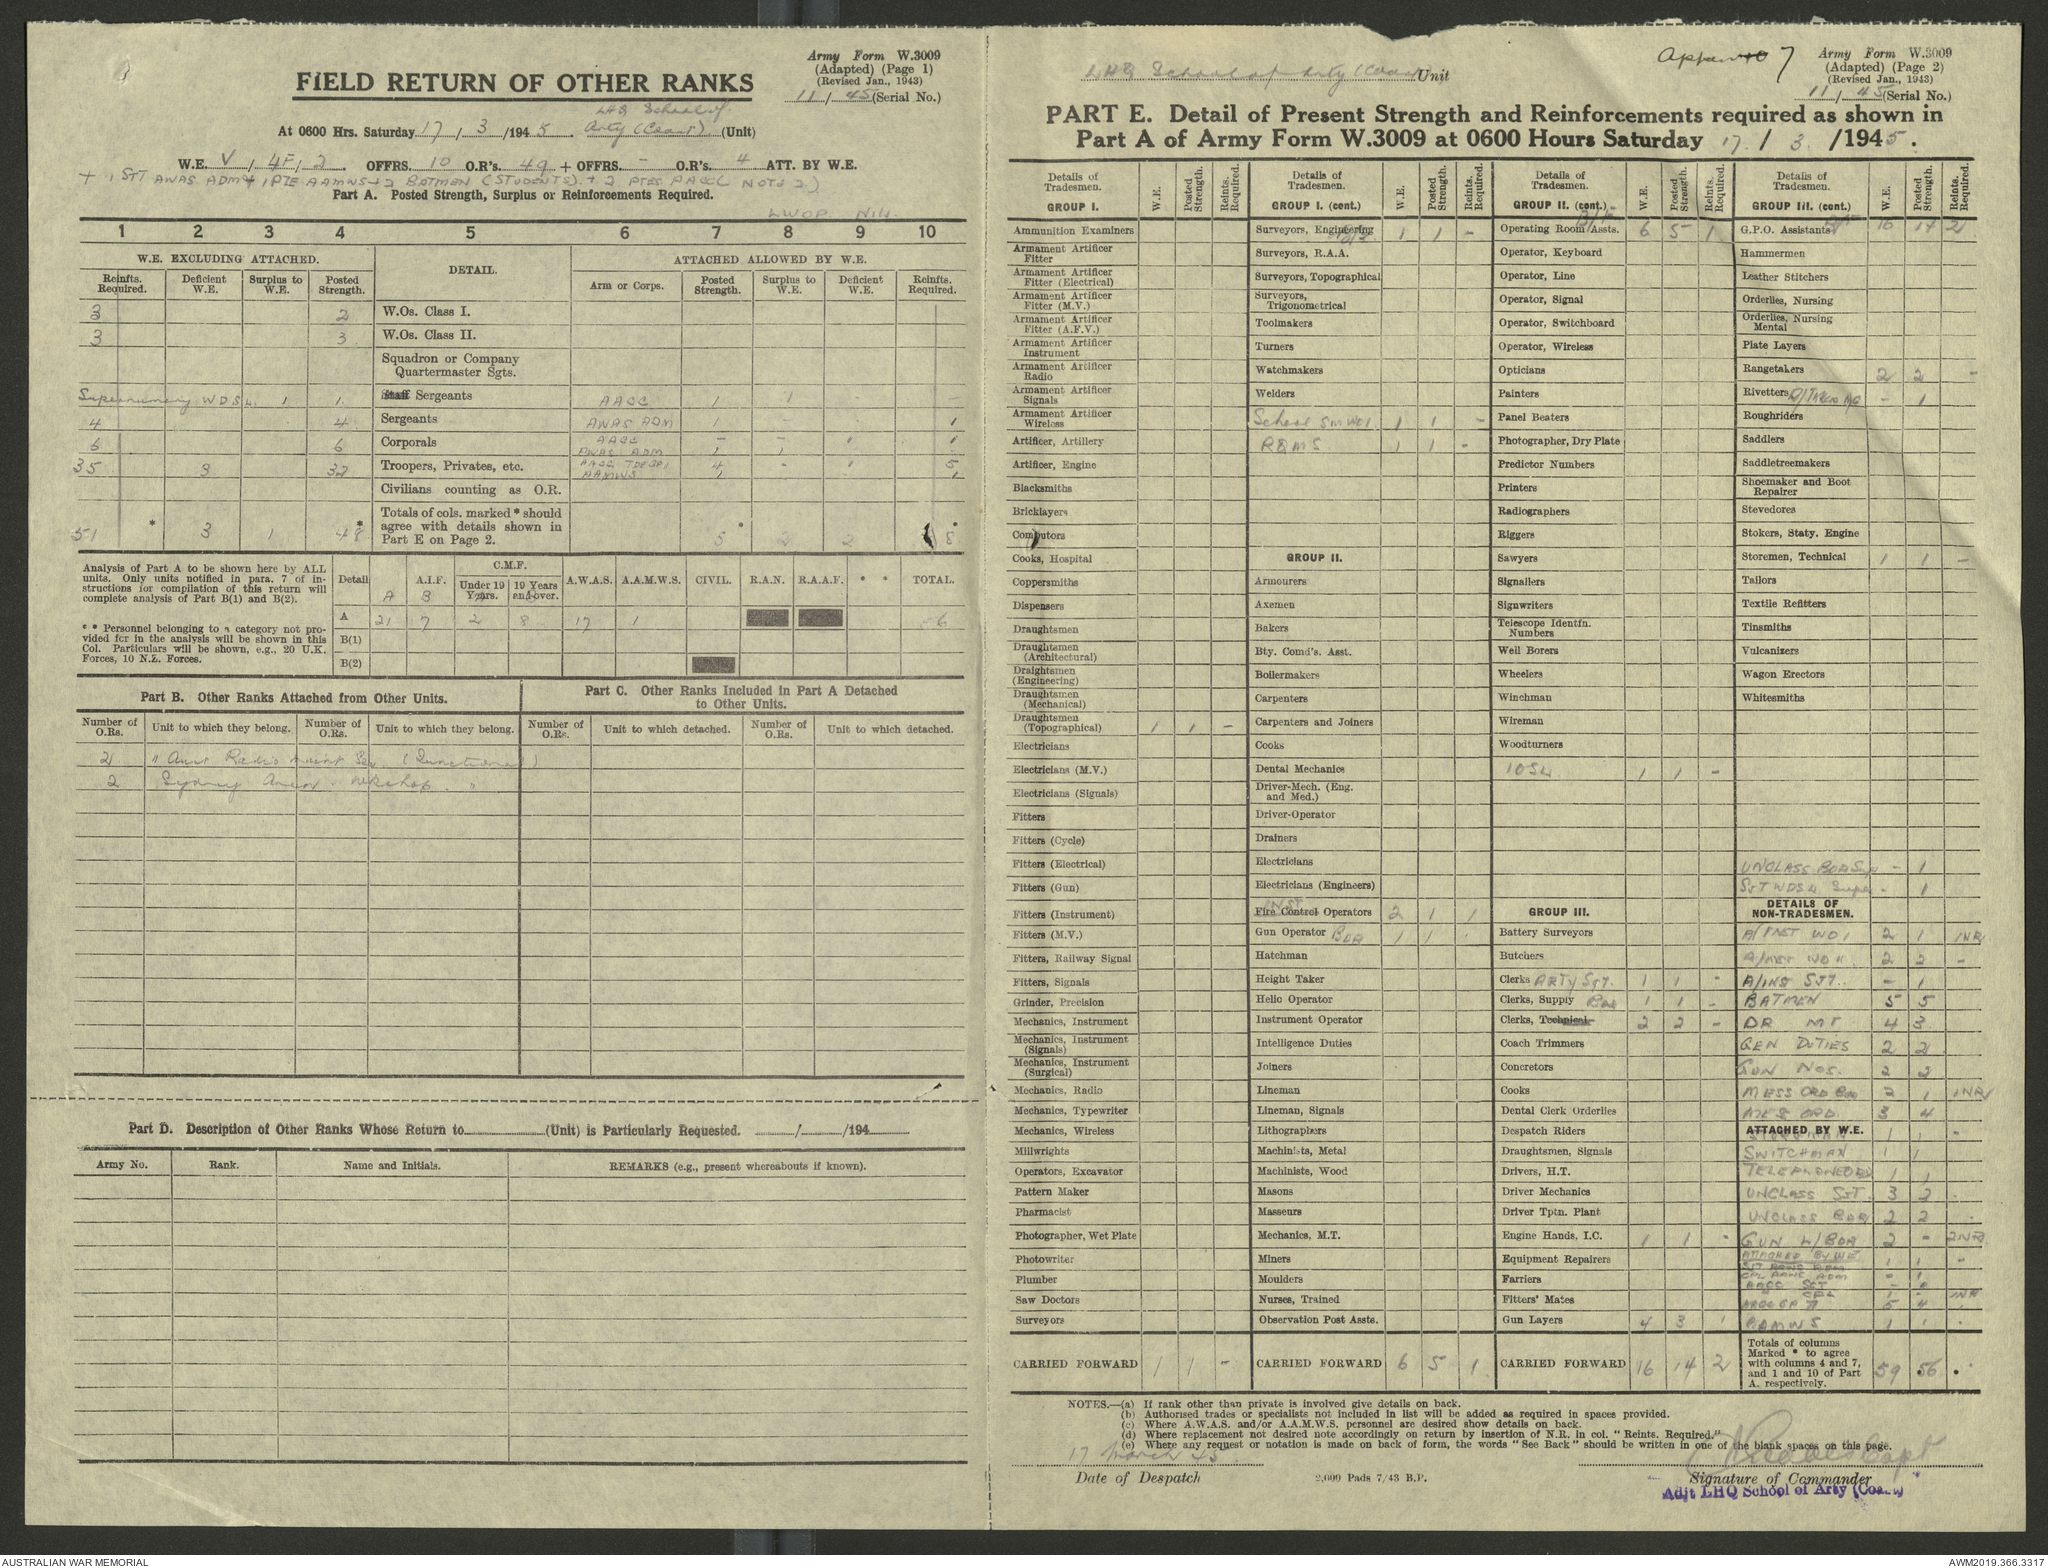 Army Form W.3009
(Adapted) (Page 1)
(Revised Jan., 1943)
11 / 45 (Serial No.)
FIELD RETURN OF OTHER RANKS
LHQ School of
At 0600 Hrs. Saturday 17 / 3 /1945. Arty (Coast) (Unit)
W.E. V / 4F / 2 OFFRS. 10 O.R's. 49 + OFFRS. - O.R's. 4 ATT. BY W.E.
+ 1 SJT AWAS ADM + 1 PTE AAMWS + 2 BATMEN (STUDENTS) + 2 PTES AACC NOTE 2)
Part A. Posted Strength, Surplus or Reinforcements Required.
LWOP NIL
1 2 3 4 5 6 7 8 9 10
W.E. EXCLUDING ATTACHED. DETAIL. ATTACHED ALLOWED BY W.E.
Reinfts. Required. Deficient W.E. Surplus to W.E. Posted Strength. Arm or Corps. Posted Strength. Surplus to W.E. Deficient W.E. Reinfts. Required.
3 2 W.Os. Class I.
3 3 W.Os. Class II.
Squadron or Company
Quartermaster Sgts.
Supernumery WDSL 1 1 Staff Sergeants AACC 1 1 -
4 4 Sergeants AWAS ADM 1 1
6 6 Corporals AACC - - 1 1
AWAS ADM 1 1
35 3 32 Troopers, Privates, etc. AACC 4 - 1 5
AAMWS 1 1
Civilians counting as O.R.
51 * 3 1 48 * Totals of cols. marked * should agree with details shown in Part E on Page 2. * 2 2 * 8
Analysis of Part A to be shown here by ALL units. Only units notified in para. 7 of instructions for compilation of this return will complete analysis of Part B(1) and B(2).
* * Personnel belonging to a category not provided for in the analysis will be shown in this Col. Particulars will be shown, e.g., 20 U.K. Forces, 10 N.Z. Forces.
Detail A.I.F. C.M.F. A.W.A.S. A.A.M.W.S. CIVIL. R.A.N. R.A.A.F. * * TOTAL.
A B Under 19 Years. 19 Years and over.
A 21 7 2 8 17 1 6
B(1)
B(2)
Part B. Other Ranks Attached from Other Units.
Part C. Other Ranks Included in Part A Detached to Other Units.
Number of O.Rs. Unit to which they belong. Number of O.Rs. Unit to which they belong. Number of O.Rs. Unit to which detached. Number of O.Rs. Unit to which detached.
21 " Aust Radio Maint Sec (Functional)
2 Sydney Area Wkshop "
Part D. Description of Other Ranks Whose Return to (Unit) is Particularly Requested. / /194
Army No. Rank. Name and Initials. REMARKS (e.g., present whereabouts if known).
Appendix 7
LHQ School of Arty (Coast) Unit
Army Form W.3009
(Adapted) (Page 2)
(Revised Jan., 1943)
11 / 45 (Serial No.)
PART E. Detail of Present Strength and Reinforcements required as shown in
Part A of Army Form W.3009 at 0600 Hours Saturday 17 / 3 /1945.
Details of Tradesmen. W.E. Posted Strength. Reints. Required.
GROUP I.
Ammunition Examiners
Armament Artificer Fitter
Armament Artificer Fitter (Electrical)
Armament Artificer Fitter (M.V.)
Armament Artificer Fitter (A.F.V.)
Armament Artificer Instrument
Armament Artificer Radio
Armament Artificer Signals
Armament Artificer Wireless
Artificer, Artillery
Artificer, Engine
Blacksmiths
Bricklayers
Computors
Cooks, Hospital
Coppersmiths
Dispensers
Draughtsmen
Draughtsmen (Architectural)
Draightsmen (Engineering)
Draughtsmen (Mechanical)
Draughtsmen (Topographical) 1 1 -
Electricians
Electricians (M.V.)
Electricians (Signals)
Fitters
Fitters (Cycle)
Fitters (Electrical)
Fitters (Gun)
Fitters (Instrument)
Fitters (M.V.)
Fitters, Railway Signal
Fitters, Signals
Grinder, Precision
Mechanics, Instrument
Mechanics, Instrument (Signals)
Mechanics, Instrument (Surgical)
Mechanics, Radio
Mechanics, Typewriter
Mechanics, Wireless
Millwrights
Operators, Excavator
Pattern Maker
Pharmacist
Photographer, Wet Plate
Photowriter
Plumber
Saw Doctors
Surveyors
CARRIED FORWARD 1 1 -
Details of Tradesmen. W.E. Posted Strength. Reints. Required.
GROUP I. (cont.)
Surveyors, Engineering 1 1 -
Surveyors, R.A.A.
Surveyors, Topographical
Surveyors, Trigonometrical
Toolmakers
Turners
Watchmakers
Welders
School SM WO1 1 1 -
RQMS 1 1 -
GROUP II.
Armourers
Axemen
Bakers
Bty. Comd's. Asst.
Boilermakers
Carpenters
Carpenters and Joiners
Cooks
Dental Mechanics
Driver-Mech. (Eng. and Med.)
Driver-Operator
Drainers
Electricians
Electricians (Engineers)
INST
Fire Control Operators 2 1 1
Gun Operator BDR 1 1
Hatchman
Height Taker
Helio Operator
Instrument Operator
Intelligence Duties
Joiners
Lineman
Lineman, Signals
Lithographers
Machinists, Metal
Machinists, Wood
Masons
Masseurs
Mechanics, M.T.
Miners
Moulders
Nurses, Trained
Observation Post Assts.
CARRIED FORWARD 6 5 1
Details of Tradesmen. W.E. Posted Strength. Reints. Required.
GROUP II. (cont.)
B/F
Operating Room Assts. 6 5 1
Operator, Keyboard
Operator, Line
Operator, Signal
Operator, Switchboard
Operator, Wireless
Opticians
Painters
Panel Beaters
Photographer, Dry Plate
Predictor Numbers
Printers
Radiographers
Riggers
Sawyers
Signallers
Signwriters
Telescope Identfn. Numbers
Well Borers
Wheelers
Winchman
Wireman
Woodturners
10SL 1 1 -
GROUP III.
Battery Surveyors
Butchers
Clerks ARTY SJT. 1 1 -
Clerks, Supply BDR 1 1 -
Clerks, Technical 2 2 -
Coach Trimmers
Concretors
Cooks
Dental Clerk Orderlies
Despatch Riders
Draughtsmen, Signals
Drivers, H.T.
Driver Mechanics
Driver Tptn. Plant
Engine Hands, I.C. 1 1 -
Equipment Repairers
Farriers
Fitters' Mates
Gun Layers 4 3 1
CARRIED FORWARD 16 14 2
Details of Tradesmen. W.E. Posted Strength. Reints. Required.
GROUP III. (cont.)
G.P.O. Assistants B/F 16 14 2
Hammermen
Leather Stitchers
Orderlies, Nursing
Orderlies, Nursing Mental
Plate Layers
Rangetakers 2 2 -
Rivetters - 1
Roughriders
Saddlers
Saddletreemakers
Shoemaker and Boot Repairer
Stevedores
Stokers, Staty. Engine
Storemen, Technical 1 1 -
Tailors
Textile Refitters
Tinsmiths
Vulcanizers
Wagon Erectors
Whitesmiths
UNCLASS BDR Sup - 1
SJT WDSL Super - 1
DETAILS OF NON-TRADESMEN.
A/INST WO1 2 1 1NR
A/INST WO II 2 2 -
A/INS SJT. - 1
BATMEN 5 5
DR MT 4 3
GEN DUTIES 2 2
GUN NOS. 2 2
MESS ORD BDR 2 1 1NR
MESS ORD. 3 4
ATTACHED BY W.E.
STOREMAN 1 1 -
SWITCHMAN 1 1
TELEPHONEOPS 1 1
UNCLASS SJT 3 2 -
UNCLASS BDR 2 2 -
GUN L/BDR 2 - 2NR
ATTACHED BY WE
SJT AWAS ADM 1 1 -
CPL AWAS ADM - 1
AACC SJT
CPL 1 - 1NR
AACC 5 4
AAMWS 1 1 .
Totals of columns Marked * to agree with columns 4 and 7, and 1 and 10 of Part A. respectively. 59 56
NOTES.—(a) If rank other than private is involved give details on back.
(b) Authorised trades or specialists not included in list will be added as required in spaces provided.
(c) Where A.W.A.S. and/or A.A.M.W.S. personnel are desired show details on back.
(d) Where replacement not desired note accordingly on return by insertion of N.R. in col. "Reints. Required."
(e) Where any request or notation is made on back of form, the words "See Back" should be written in one of the blank spaces on this page.
17 March 45
Date of Despatch
2,000 Pads 7/43 B.P.
Capt
Signature of Commander
Adjt LHQ School of Arty (Coast)
AUSTRALIAN WAR MEMORIAL
AWM2019.366.3317